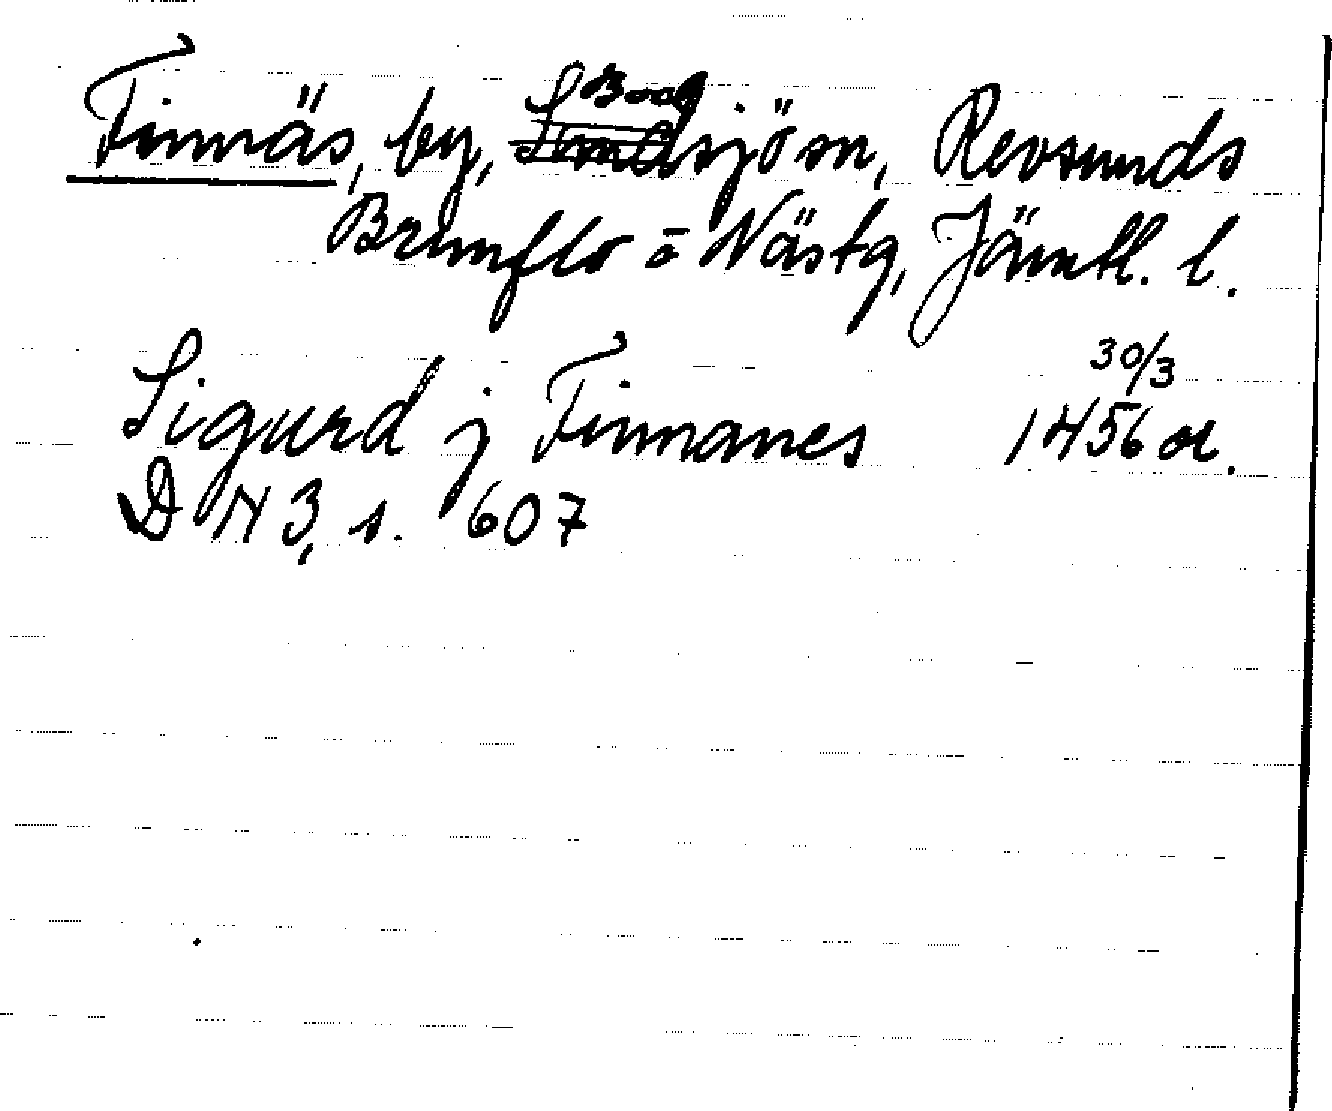 Finnäs, by, Bodsjön, Revsunds
Brunflo o Nästg, Jämtl. l.
Sigurd j Finnanes 30/3
1456 or.
DN 3, s. 607